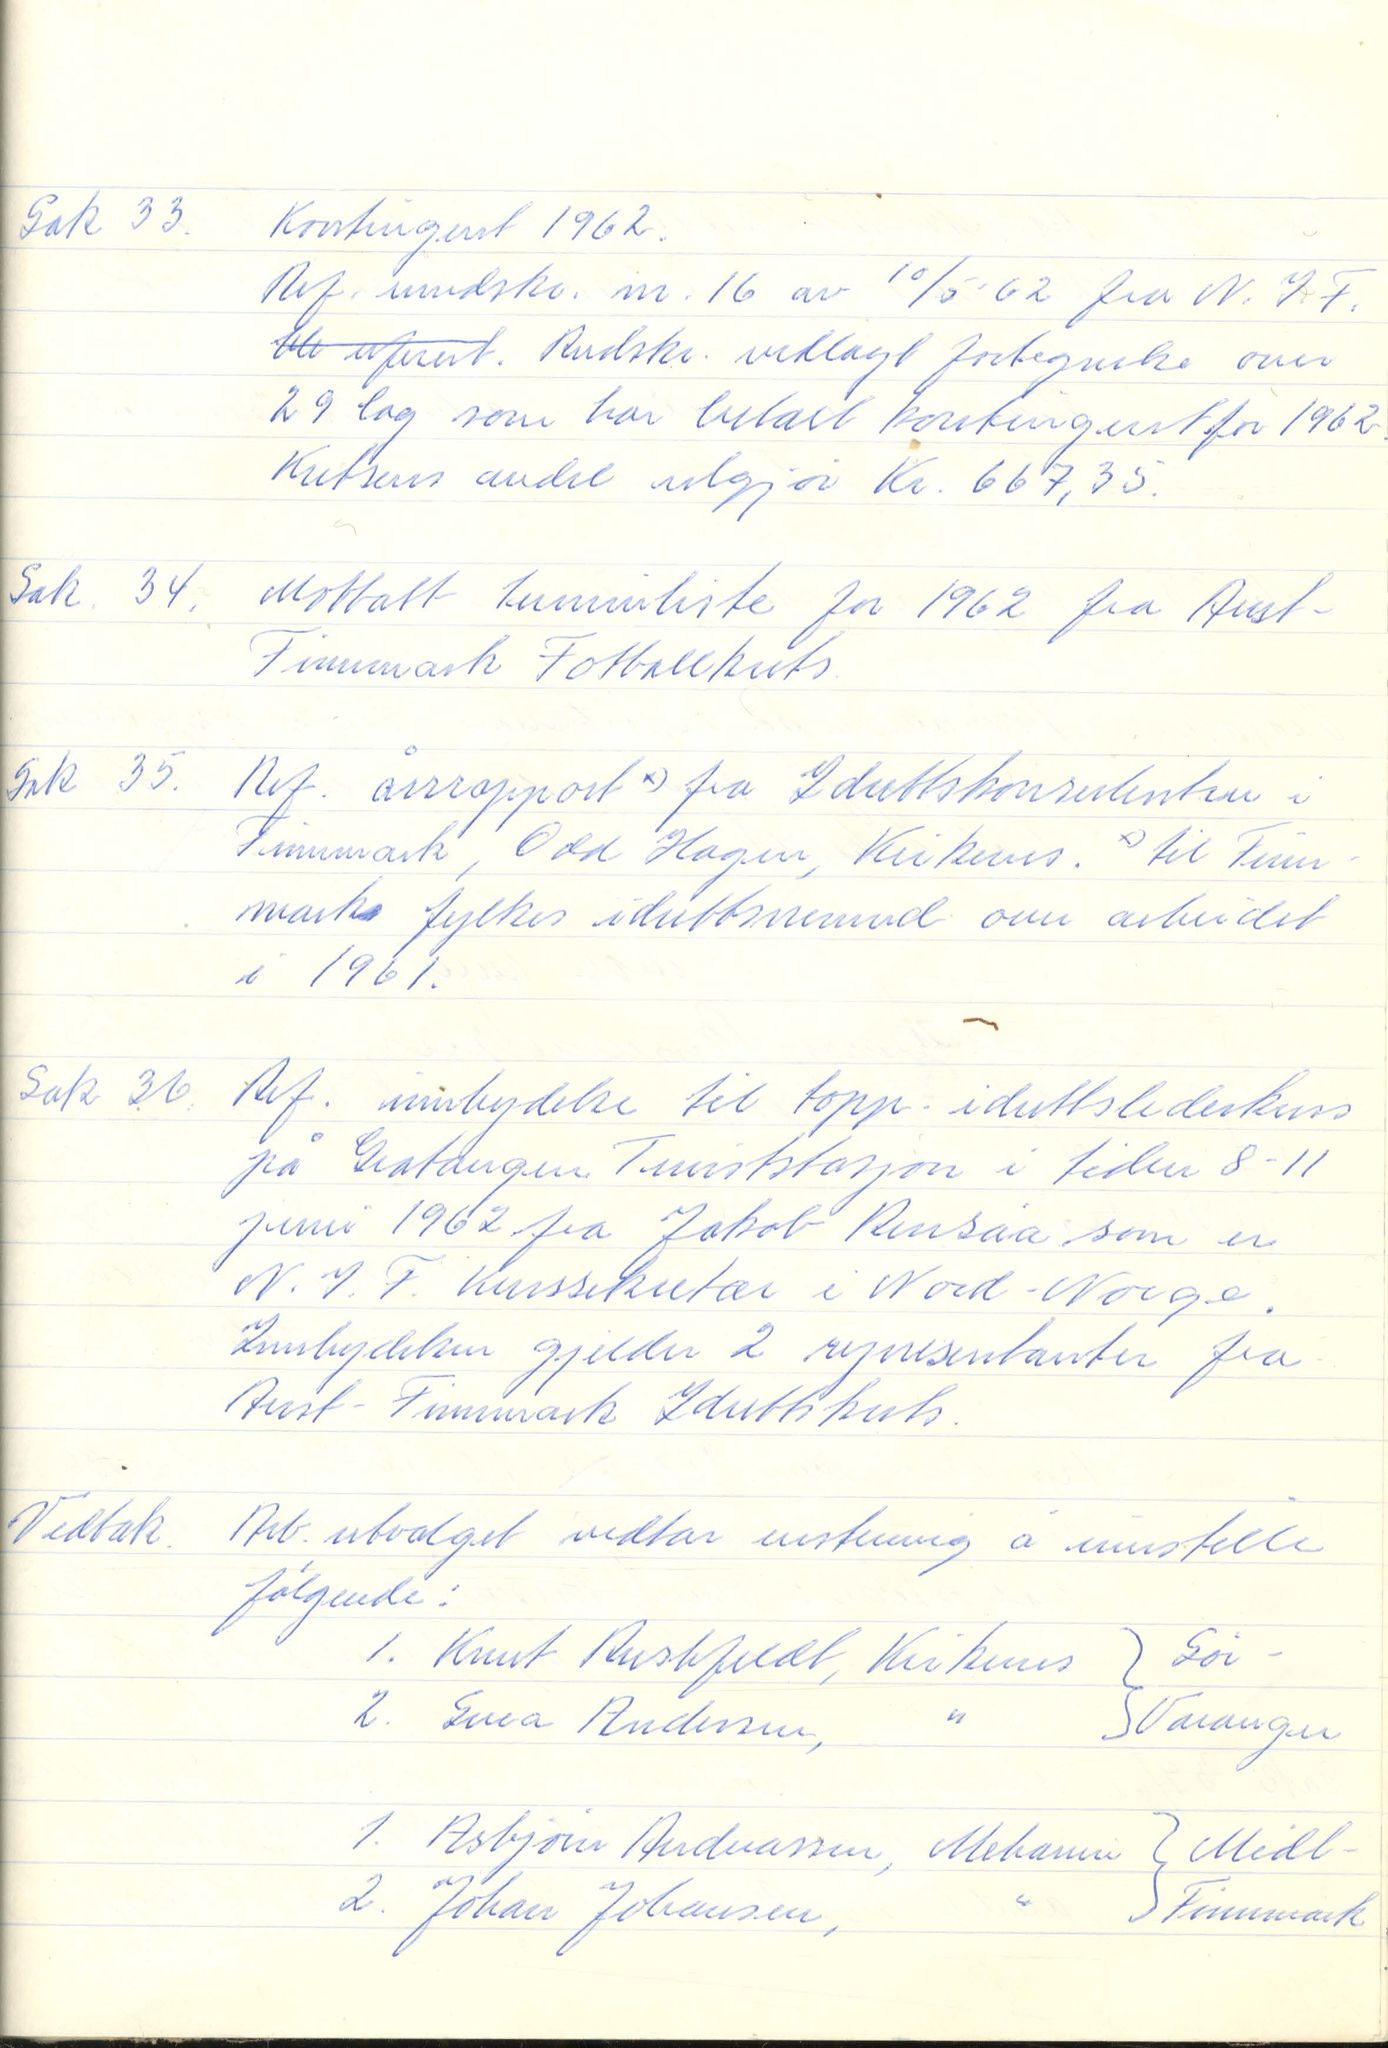 Sak 33. Kontingent 1962.
Ref. rundskr. nr. 16 av 10/5-62 fra N. I. F.
ble referert. Rundskr. vedlagt fortegnelse over
29 lag som har betalt kontingent for 1962.
Kretsens andel utgjør Kr. 667,35.
Sak. 34. Mottatt terminliste for 1962 fra Aust-
Finnmark Fotballkrets.
Sak 35. Ref. årsrapport x) fra Idrettskonsulenten i
Finnmark, Odd Hagen, Kirkenes. x) til Finn-
mark fylkes idrettsnemnd over arbeidet
i 1961.
Sak 36. Ref. innbydelse til topp-idrettslederkurs
på Gratangen Turiststasjon i tiden 8-11
juni 1962 fra Jakob Rensåa som er
N. I. F. kurssekretær i Nord-Norge.
Innbydelsen gjelder 2 representanter fra
Aust-Finnmark Idrettskrets.
Vedtak. Arb. utvalget vedtar enstemmig å innstille
følgende:
1. Knut Rushfeldt, Kirkenes } Sør-
2. Svea Andersen, " } Varanger
1. Asbjørn Andreassen, Mehamn } Midt-
2. Johan Johansen, " } Finnmark